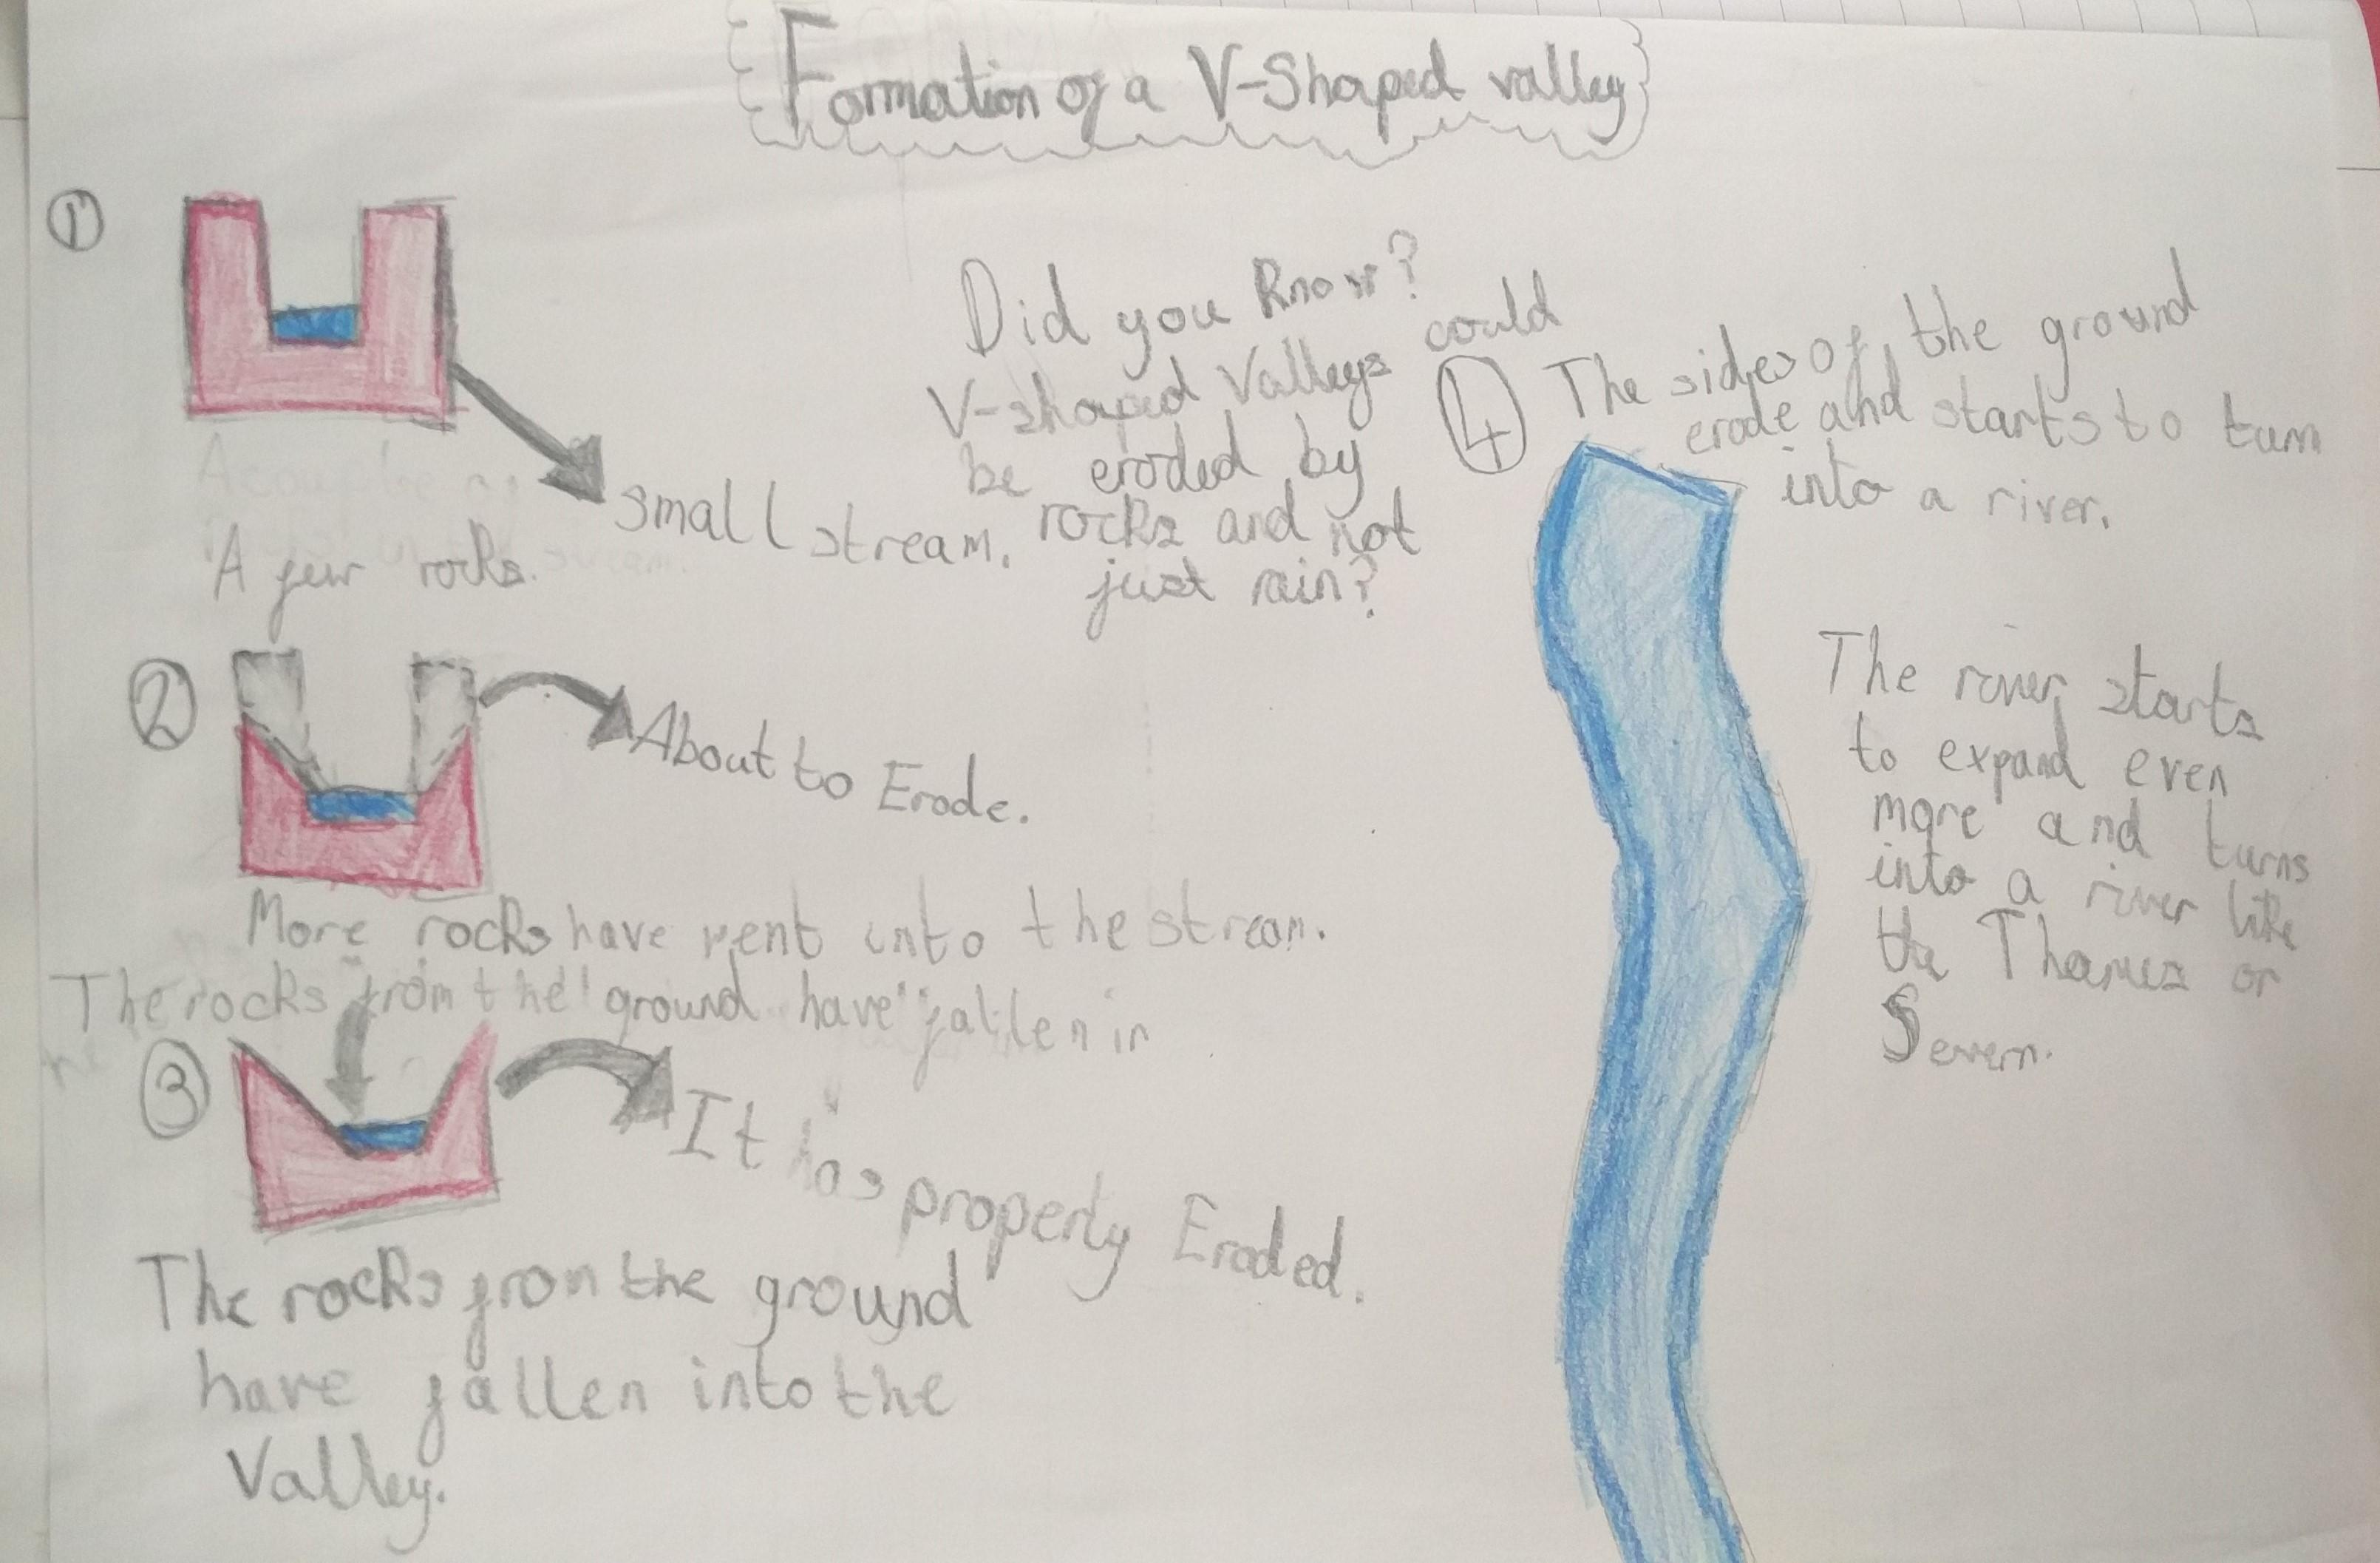 Formation of a V-Shaped valley
①
small stream.
A few rocks.
Did you know?
V-shaped Valleys could
be eroded by
rocks and not
just rain?
②
About to Erode.
More rocks have went into the stream.
The rocks from the ground have fallen in
③
It has properly Eroded.
The rocks from the ground
have fallen into the
Valley.
④ The sides of the ground
erode and starts to turn
into a river.
The river starts
to expand even
more and turns
into a river like
the Thames or
Severn.